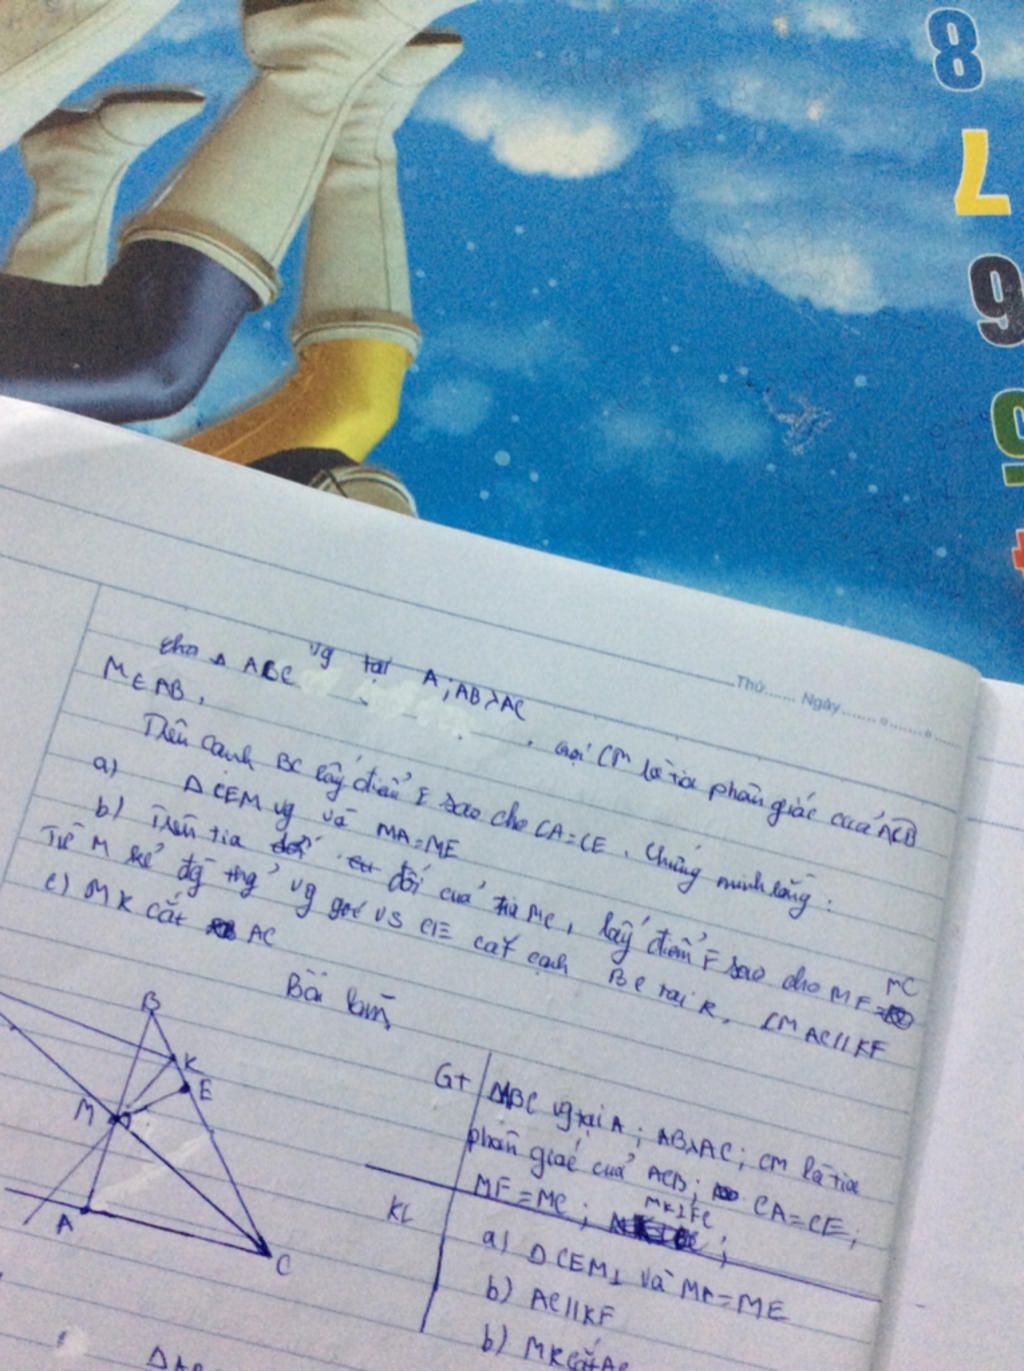 8
7
6
5
Thứ....... Ngày.......
cho Δ ABC vg tại A ; AB>AC . Gọi CM là tia phân giác của ACB
M ∈ AB,
Trên cạnh BC lấy điểm E sao cho CA=CE. Chứng minh rằng :
a) Δ CEM vg và MA=ME
b) Trên tia đối của tia MC, lấy điểm F sao cho MF= MC
Từ M kẻ đg thg vg góc vs CF cắt cạnh BC tại K. CM AC//KF
c) MK cắt AC
Bài làm
B
K
E
M
A
C
GT
ΔABC vg tại A ; AB>AC ; CM là tia
phân giác của ACB ; CA=CE ;
MF=MC ; MK⊥FC ;
KL
a) Δ CEM⊥ và MA=ME
b) AC//KF
b) MK cắt AC